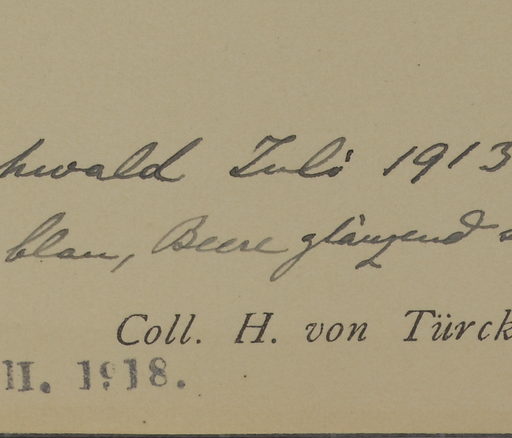 hwald Juli 1913
blau, Beere glänzend
Coll. H. von Türck
II. 1918.